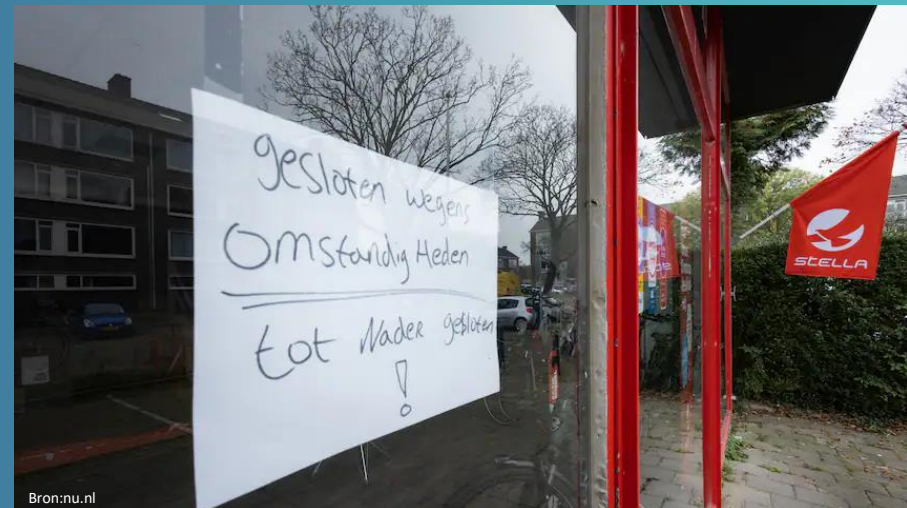 gesloten wegens
Omstandig Heden
tot Nader gesloten
!
STELLA
Bron:nu.nl